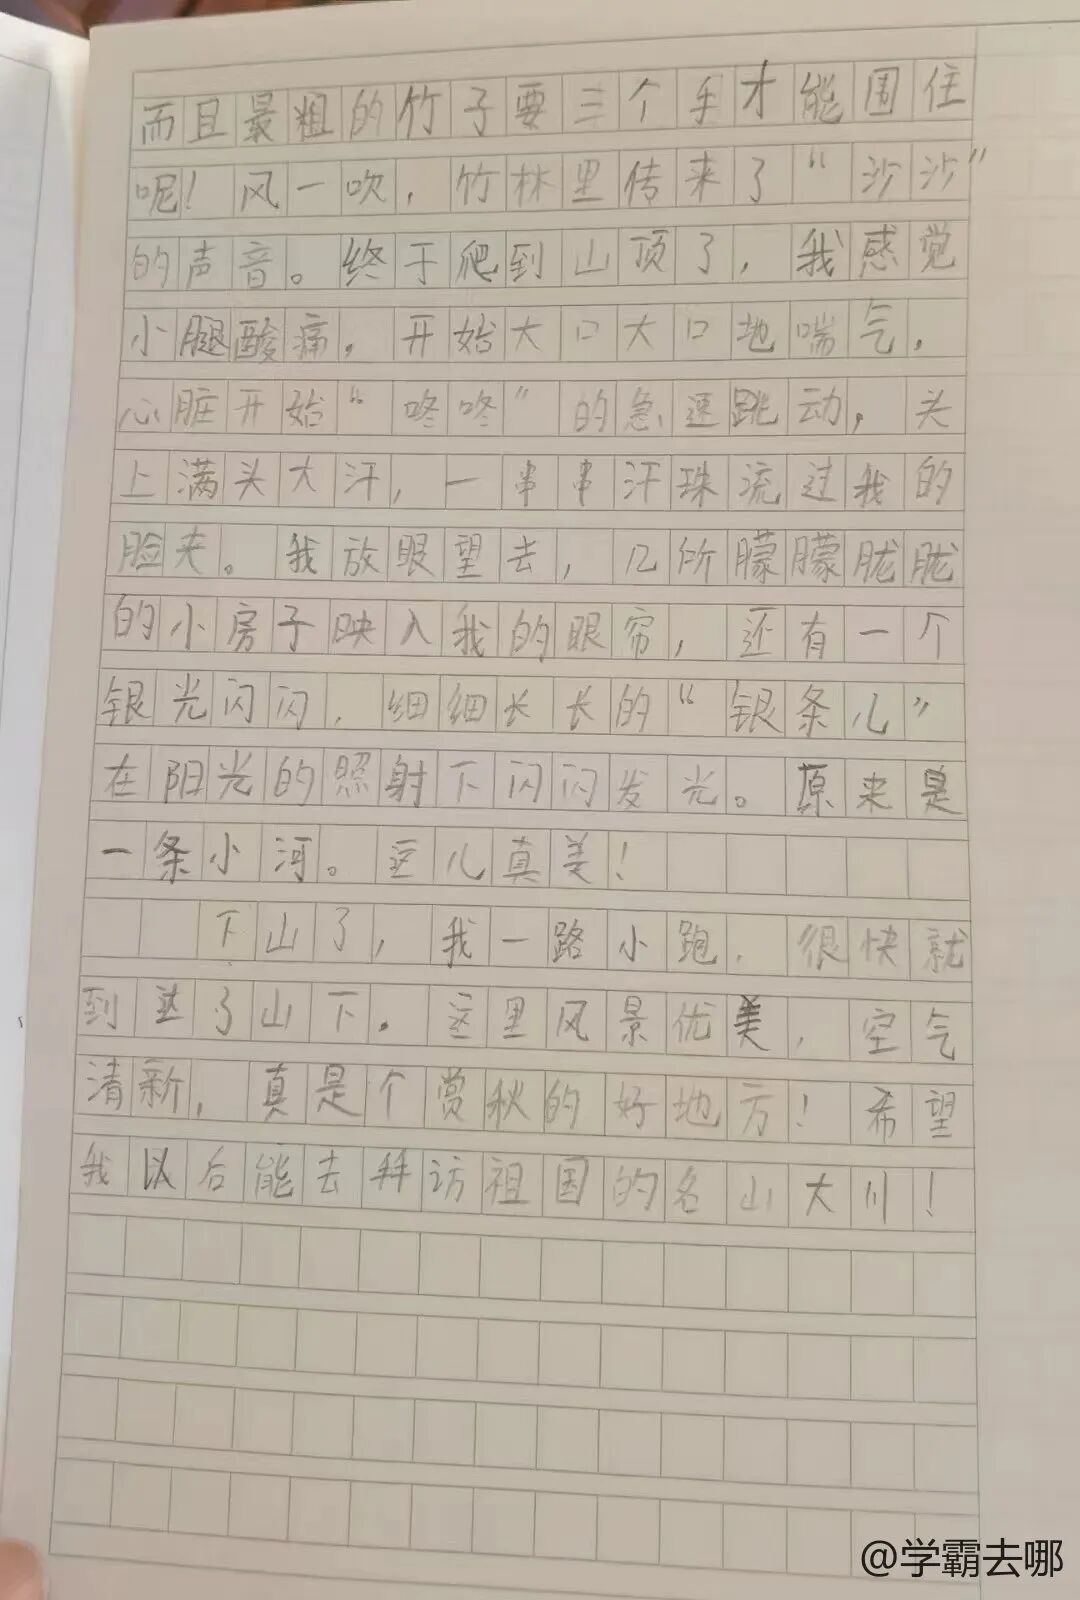 而且最粗的竹子要三个手才能围住
呢！风一吹，竹林里传来了“沙沙”
的声音。终于爬到山顶了，我感觉
小腿酸痛，开始大口大口地喘气，
心脏开始“咚咚”的急速跳动，头
上满头大汗，一串串汗珠流过我的
脸夹。我放眼望去，几所朦朦胧胧
的小房子映入我的眼帘，还有一个
银光闪闪，细细长长的“银条儿”
在阳光的照射下闪闪发光。原来是
一条小河。这儿真美！
下山了，我一路小跑，很快就
到达了山下。这里风景优美，空气
清新，真是个赏秋的好地方！希望
我以后能去拜访祖国的名山大川！
@学霸去哪